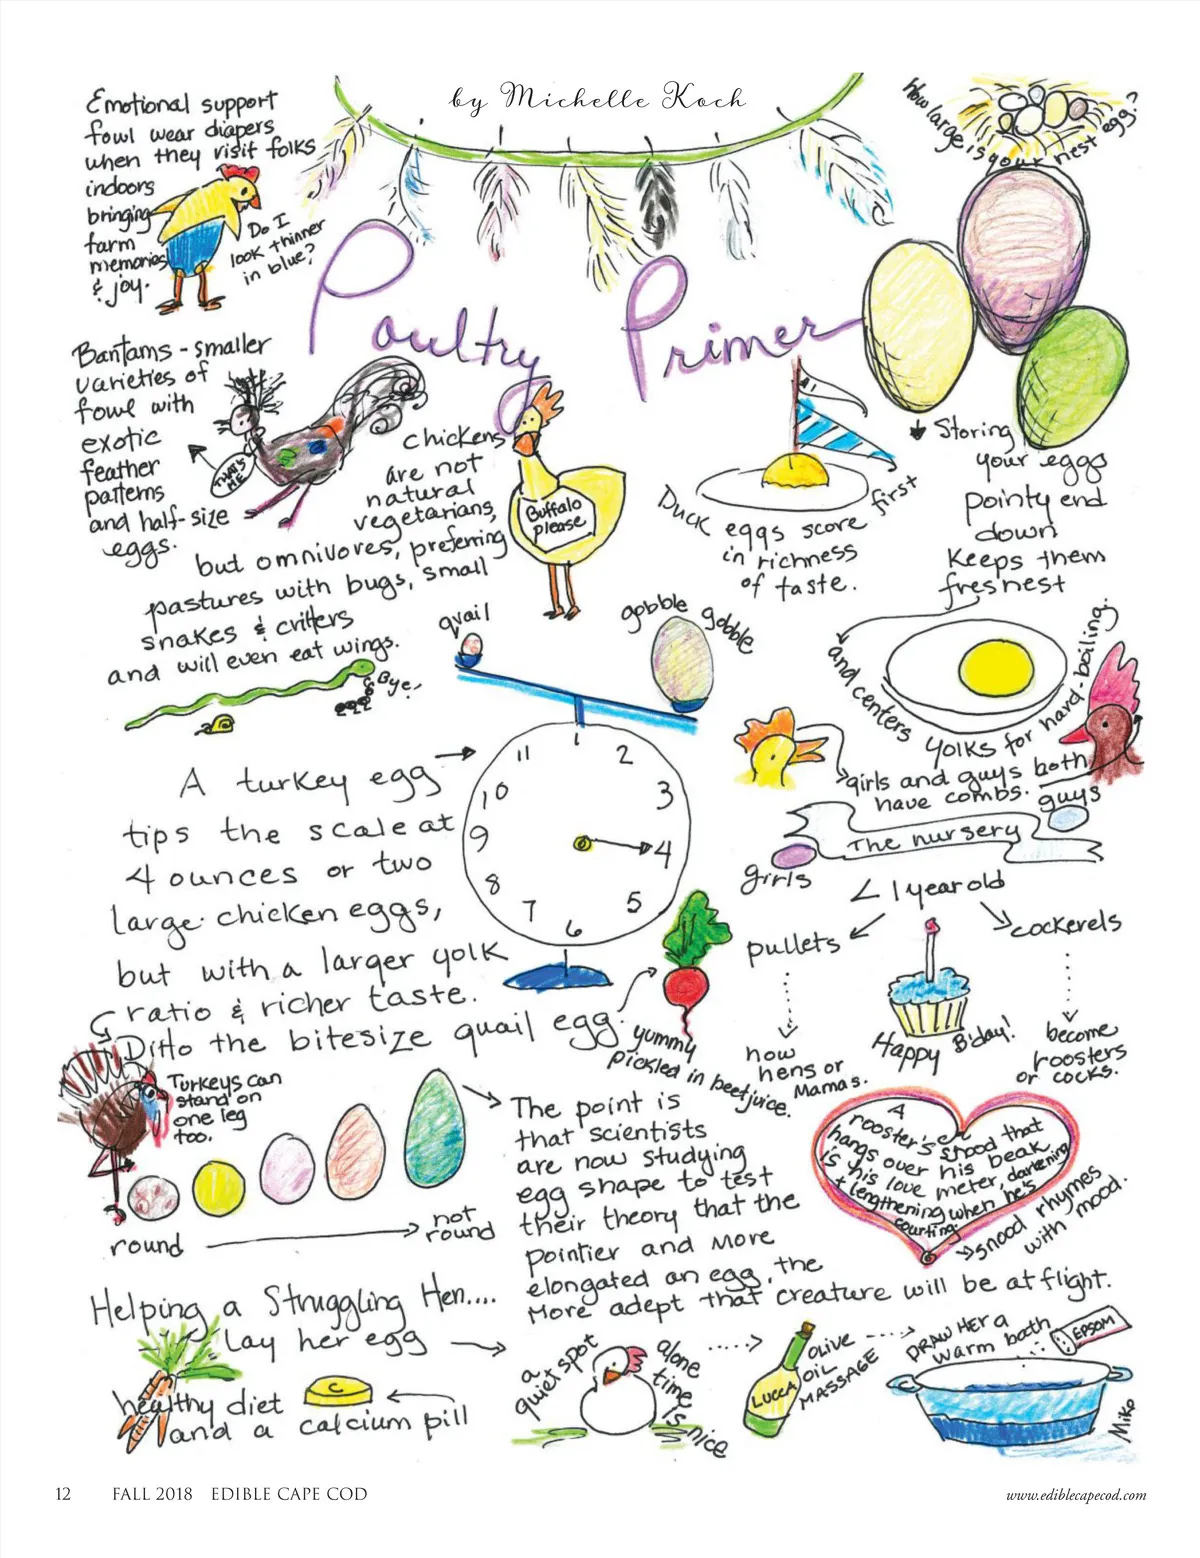 by Michelle Koch
Poultry Primer
Emotional support
fowl wear diapers
when they visit folks
indoors
bringing
farm
memories
& joy.
Do I
look thinner
in blue?
How large is your nest egg?
Bantams - smaller
varieties of
fowl with
exotic
feather
patterns
and half-size
eggs.
THAT'S
ME
chickens
are not
natural
vegetarians,
but omnivores, preferring
pastures with bugs, small
snakes & critters
and will even eat wings.
Buffalo
please
Bye!
#1
Duck eggs score first
in richness
of taste.
Storing
your eggs
pointy end
down
Keeps them
freshest
and centers yolks for hard-boiling.
girls and guys both
have combs.
quail
gobble gobble
1
2
3
4
5
6
7
8
9
10
11
A turkey egg
tips the scale at
4 ounces or two
large chicken eggs,
but with a larger yolk
ratio & richer taste.
Ditto the bitesize quail egg.
yummy
pickled in beet juice.
guys
The nursery
girls
< 1 year old
pullets
cockerels
now
hens or
Mamas.
Happy B'day!
become
roosters
or cocks.
Turkeys can
stand on
one leg
too.
round
not
round
The point is
that scientists
are now studying
egg shape to test
their theory that the
pointier and more
elongated an egg, the
more adept that creature will be at flight.
A
rooster's snood that
hangs over his beak
is his love meter, darkening
+ lengthening when he's
courting.
snood rhymes
with mood.
Helping a Struggling Hen....
lay her egg
healthy diet
and a calcium pill
C
a
quiet spot
alone
time
is
nice
LUCCA
OLIVE
OIL
MASSAGE
DRAW HER a
warm bath
EPSOM
Miko
12 FALL 2018 EDIBLE CAPE COD
www.ediblecapecod.com